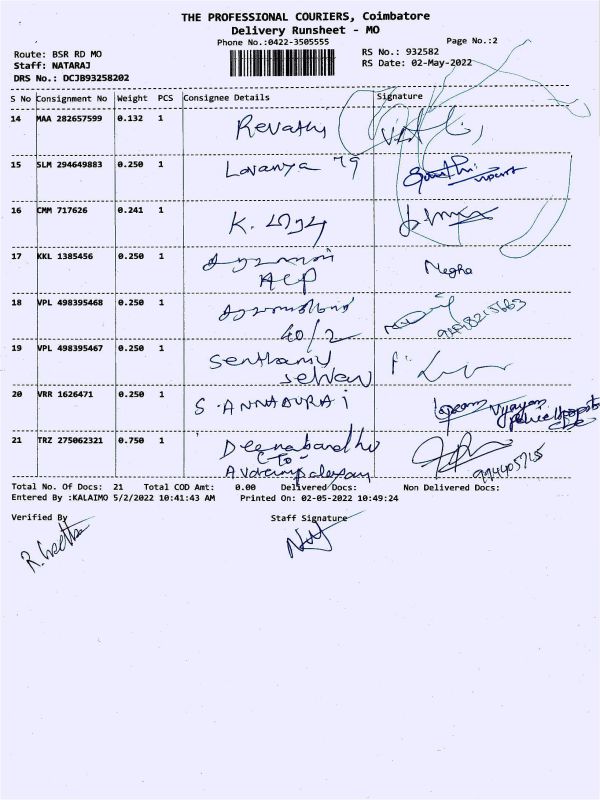 THE PROFESSIONAL COURIERS, Coimbatore
Delivery Runsheet - MO
Phone No.:0422-3505555
Page No.:2
Route: BSR RD MO
RS No.: 932582
Staff: NATARAJ
RS Date: 02-May-2022
DRS No.: DCJB93258202
S No Consignment No Weight PCS Consignee Details Signature
14 MAA 282657599 0.132 1 Revathy
15 SLM 294649883 0.250 1 Lavanya 79
16 CMM 717626 0.241 1 K.
17 KKL 1385456 0.250 1 Negha
ACP
18 VPL 498395468 0.250 1
40/2
19 VPL 498395467 0.250 1 Senthamil
selvan
20 VRR 1626471 0.250 1 S. ANNADURAI
21 TRZ 275062321 0.750 1 Deenabandhu
CTO
Avarampalayam
Total No. Of Docs: 21 Total COD Amt: 0.00 Delivered Docs: Non Delivered Docs:
Entered By :KALAIMO 5/2/2022 10:41:43 AM Printed On: 02-05-2022 10:49:24
Verified By Staff Signature